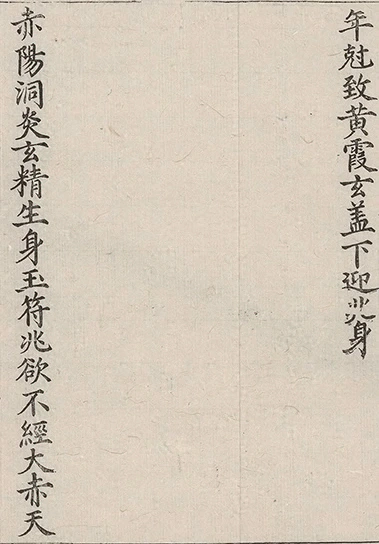 年尅致黄霞玄盖下迎兆身
赤陽洞炎玄精生身玉符兆欲不經大赤天